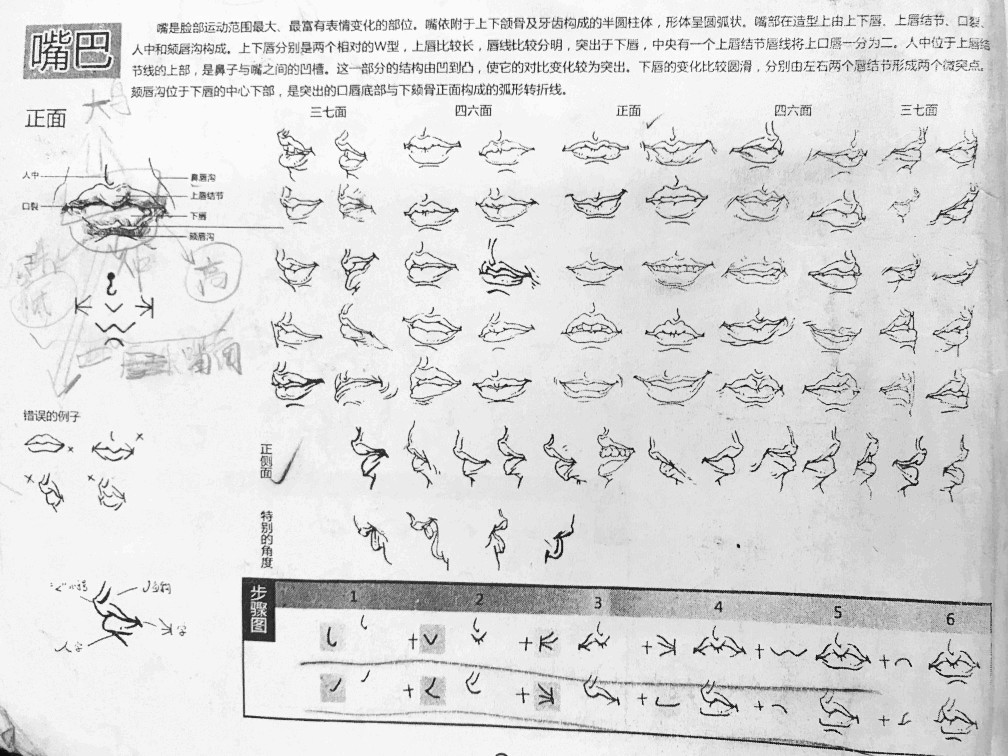 嘴巴
嘴是脸部运动范围最大、最富有表情变化的部位。嘴依附于上下颌骨及牙齿构成的半圆柱体，形体呈圆弧状。嘴部在造型上由上下唇、上唇结节、口裂、
人中和颏唇沟构成。上下唇分别是两个相对的W型，上唇比较长，唇线比较分明，突出于下唇，中央有一个上唇结节唇线将上口唇一分为二。人中位于上唇结
节线的上部，是鼻子与嘴之间的凹槽。这一部分的结构由凹到凸，使它的对比变化较为突出。下唇的变化比较圆滑，分别由左右两个唇结节形成两个微突点。
颏唇沟位于下唇的中心下部，是突出的口唇底部与下颏骨正面构成的弧形转折线。
正面
三七面 四六面 正面 四六面 三七面
人中
口裂
鼻唇沟
上唇结节
下唇
颏唇沟
高
错误的例子
正侧面
特别的角度
步骤图
1 2 3 4 5 6